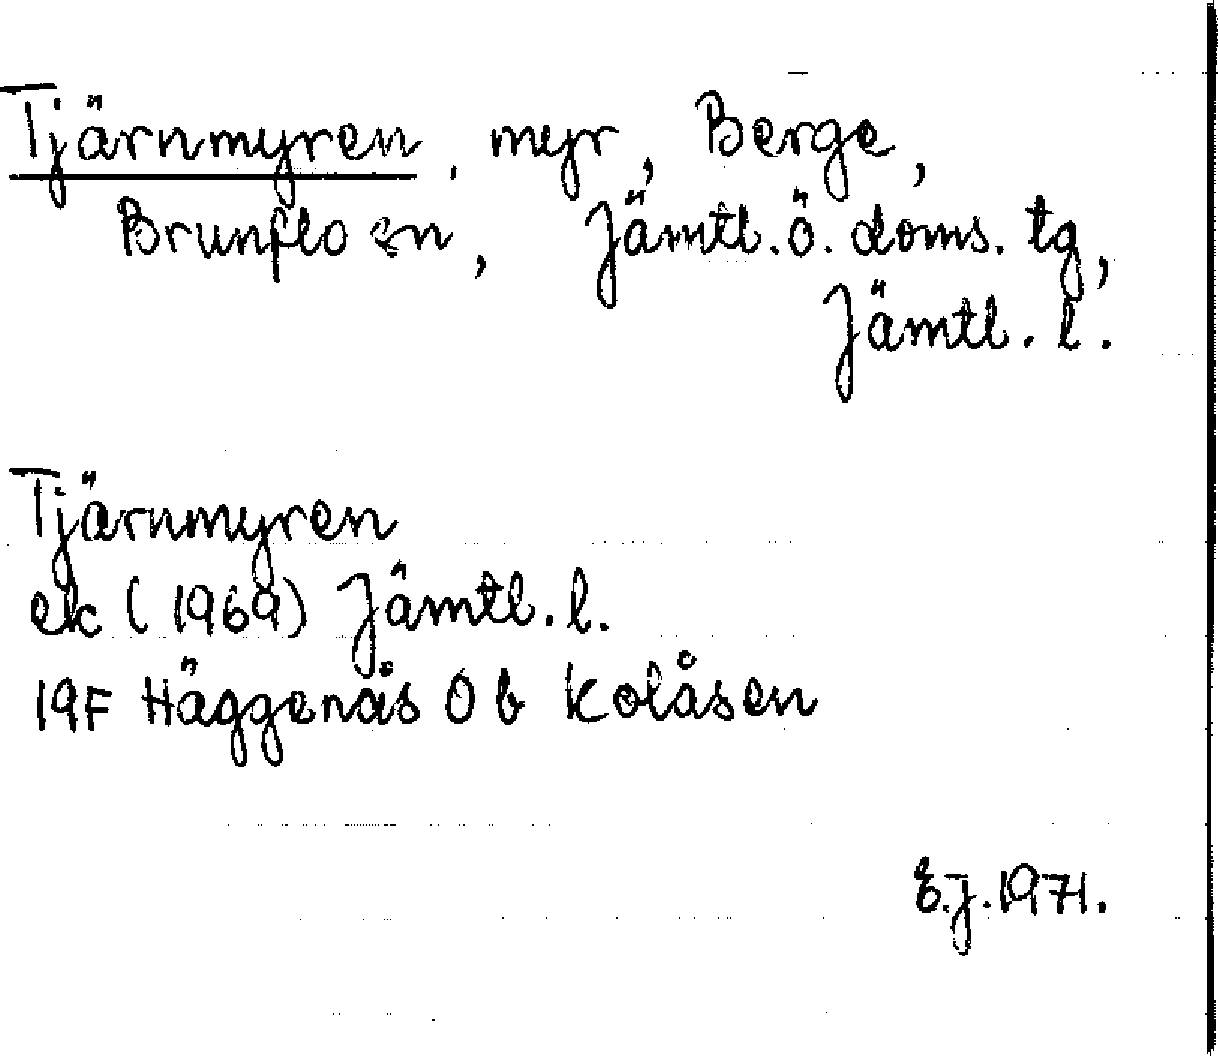 Tjärnmyren, myr, Berge,
Brunflo sn, Jämtl. ö. doms. tg,
Jämtl. l.
Tjärnmyren
ek (1969) Jämtl. l.
19F Häggenås 0 b Kolåsen
E.J. 1971.